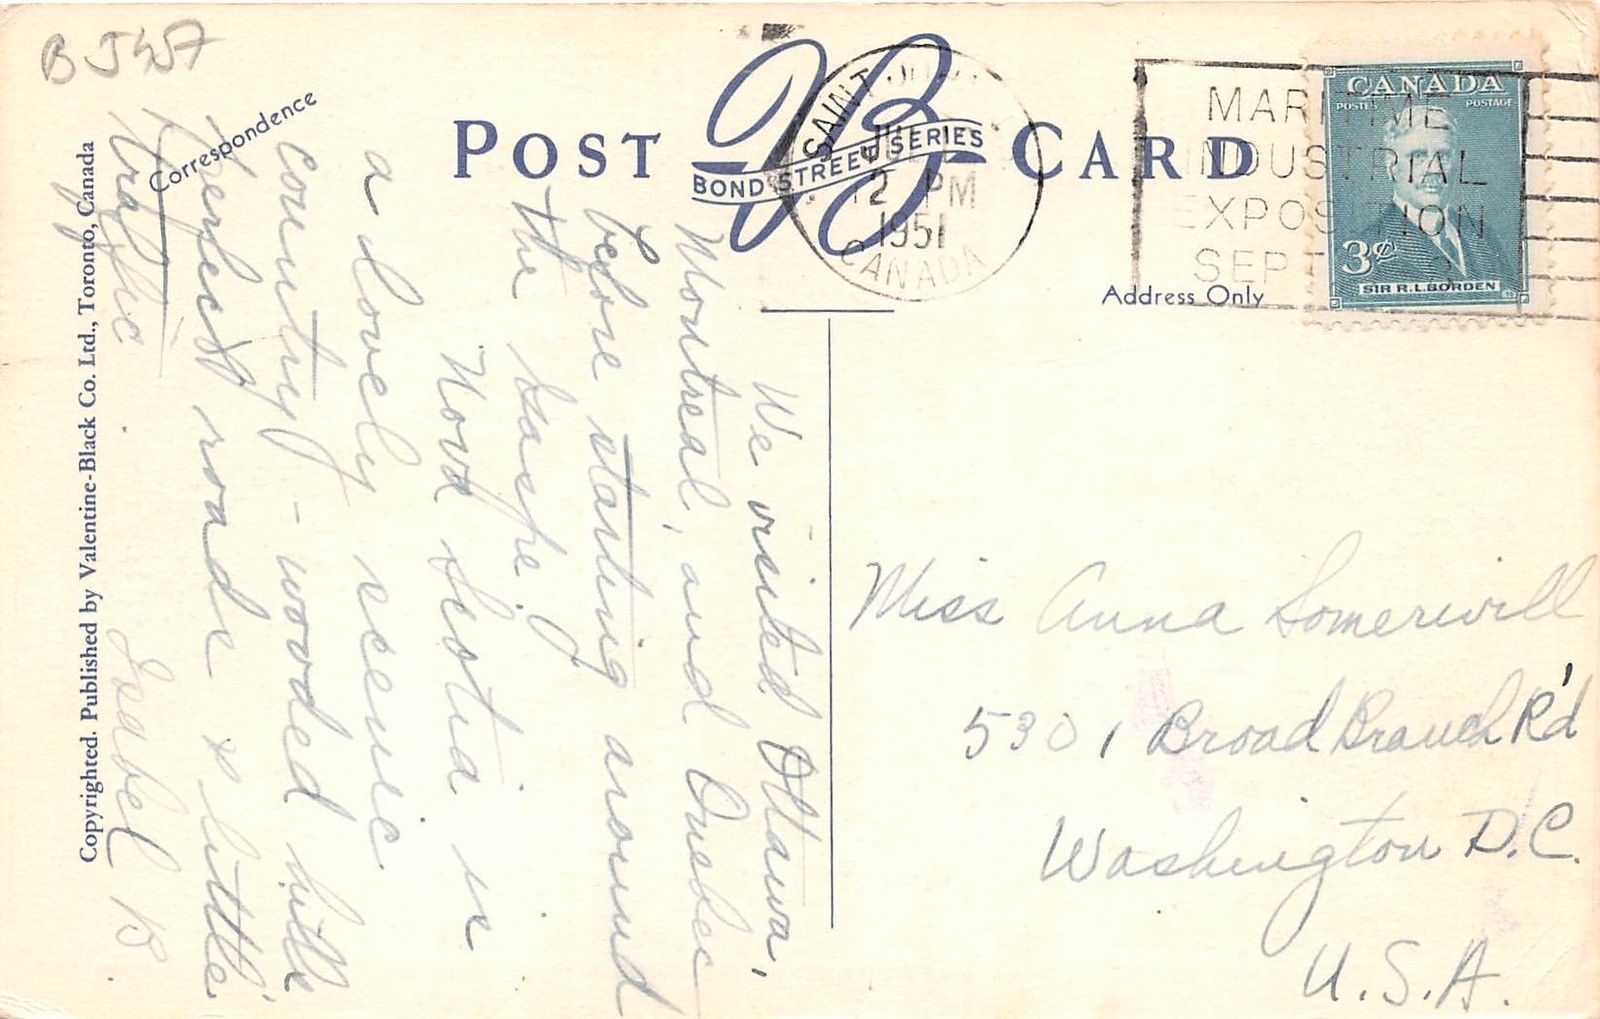 B J457
POST CARD
B
BOND STREET SERIES
SAINT JOHN
JUL
12 PM
1951
CANADA
MARITIME
INDUSTRIAL
EXPOSITION
SEPT
CANADA
POSTES POSTAGE
3¢
SIR R.L. BORDEN
Correspondence
Address Only
We visited Ottawa,
Montreal, and Quebec
before starting around
the Gaspe.
Nova Scotia is
a lovely scenic
country - wooded hills
Perfect roads & little
traffic.
Isabel B.
Miss Anna Somerwill
5301 Broad Branch R'd
Washington D.C.
U.S.A.
Copyrighted. Published by Valentine-Black Co. Ltd., Toronto, Canada